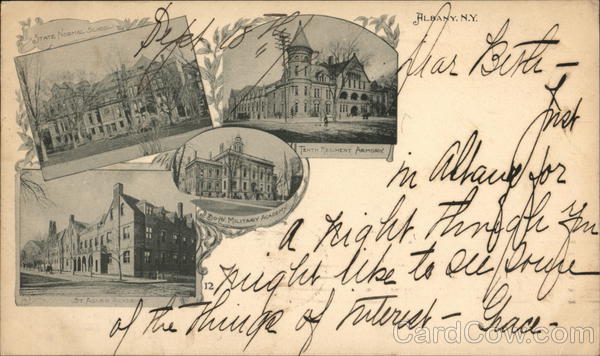 ALBANY, N.Y.
STATE NORMAL SCHOOL
TENTH REGIMENT ARMORY.
BOYS' MILITARY ACADEMY
ST. AGNES
12
Sept 18th
Dear Beth —
Just
in Albany for
a night though you
might like to see some
of the things of interest — Grace —
CardCow.com